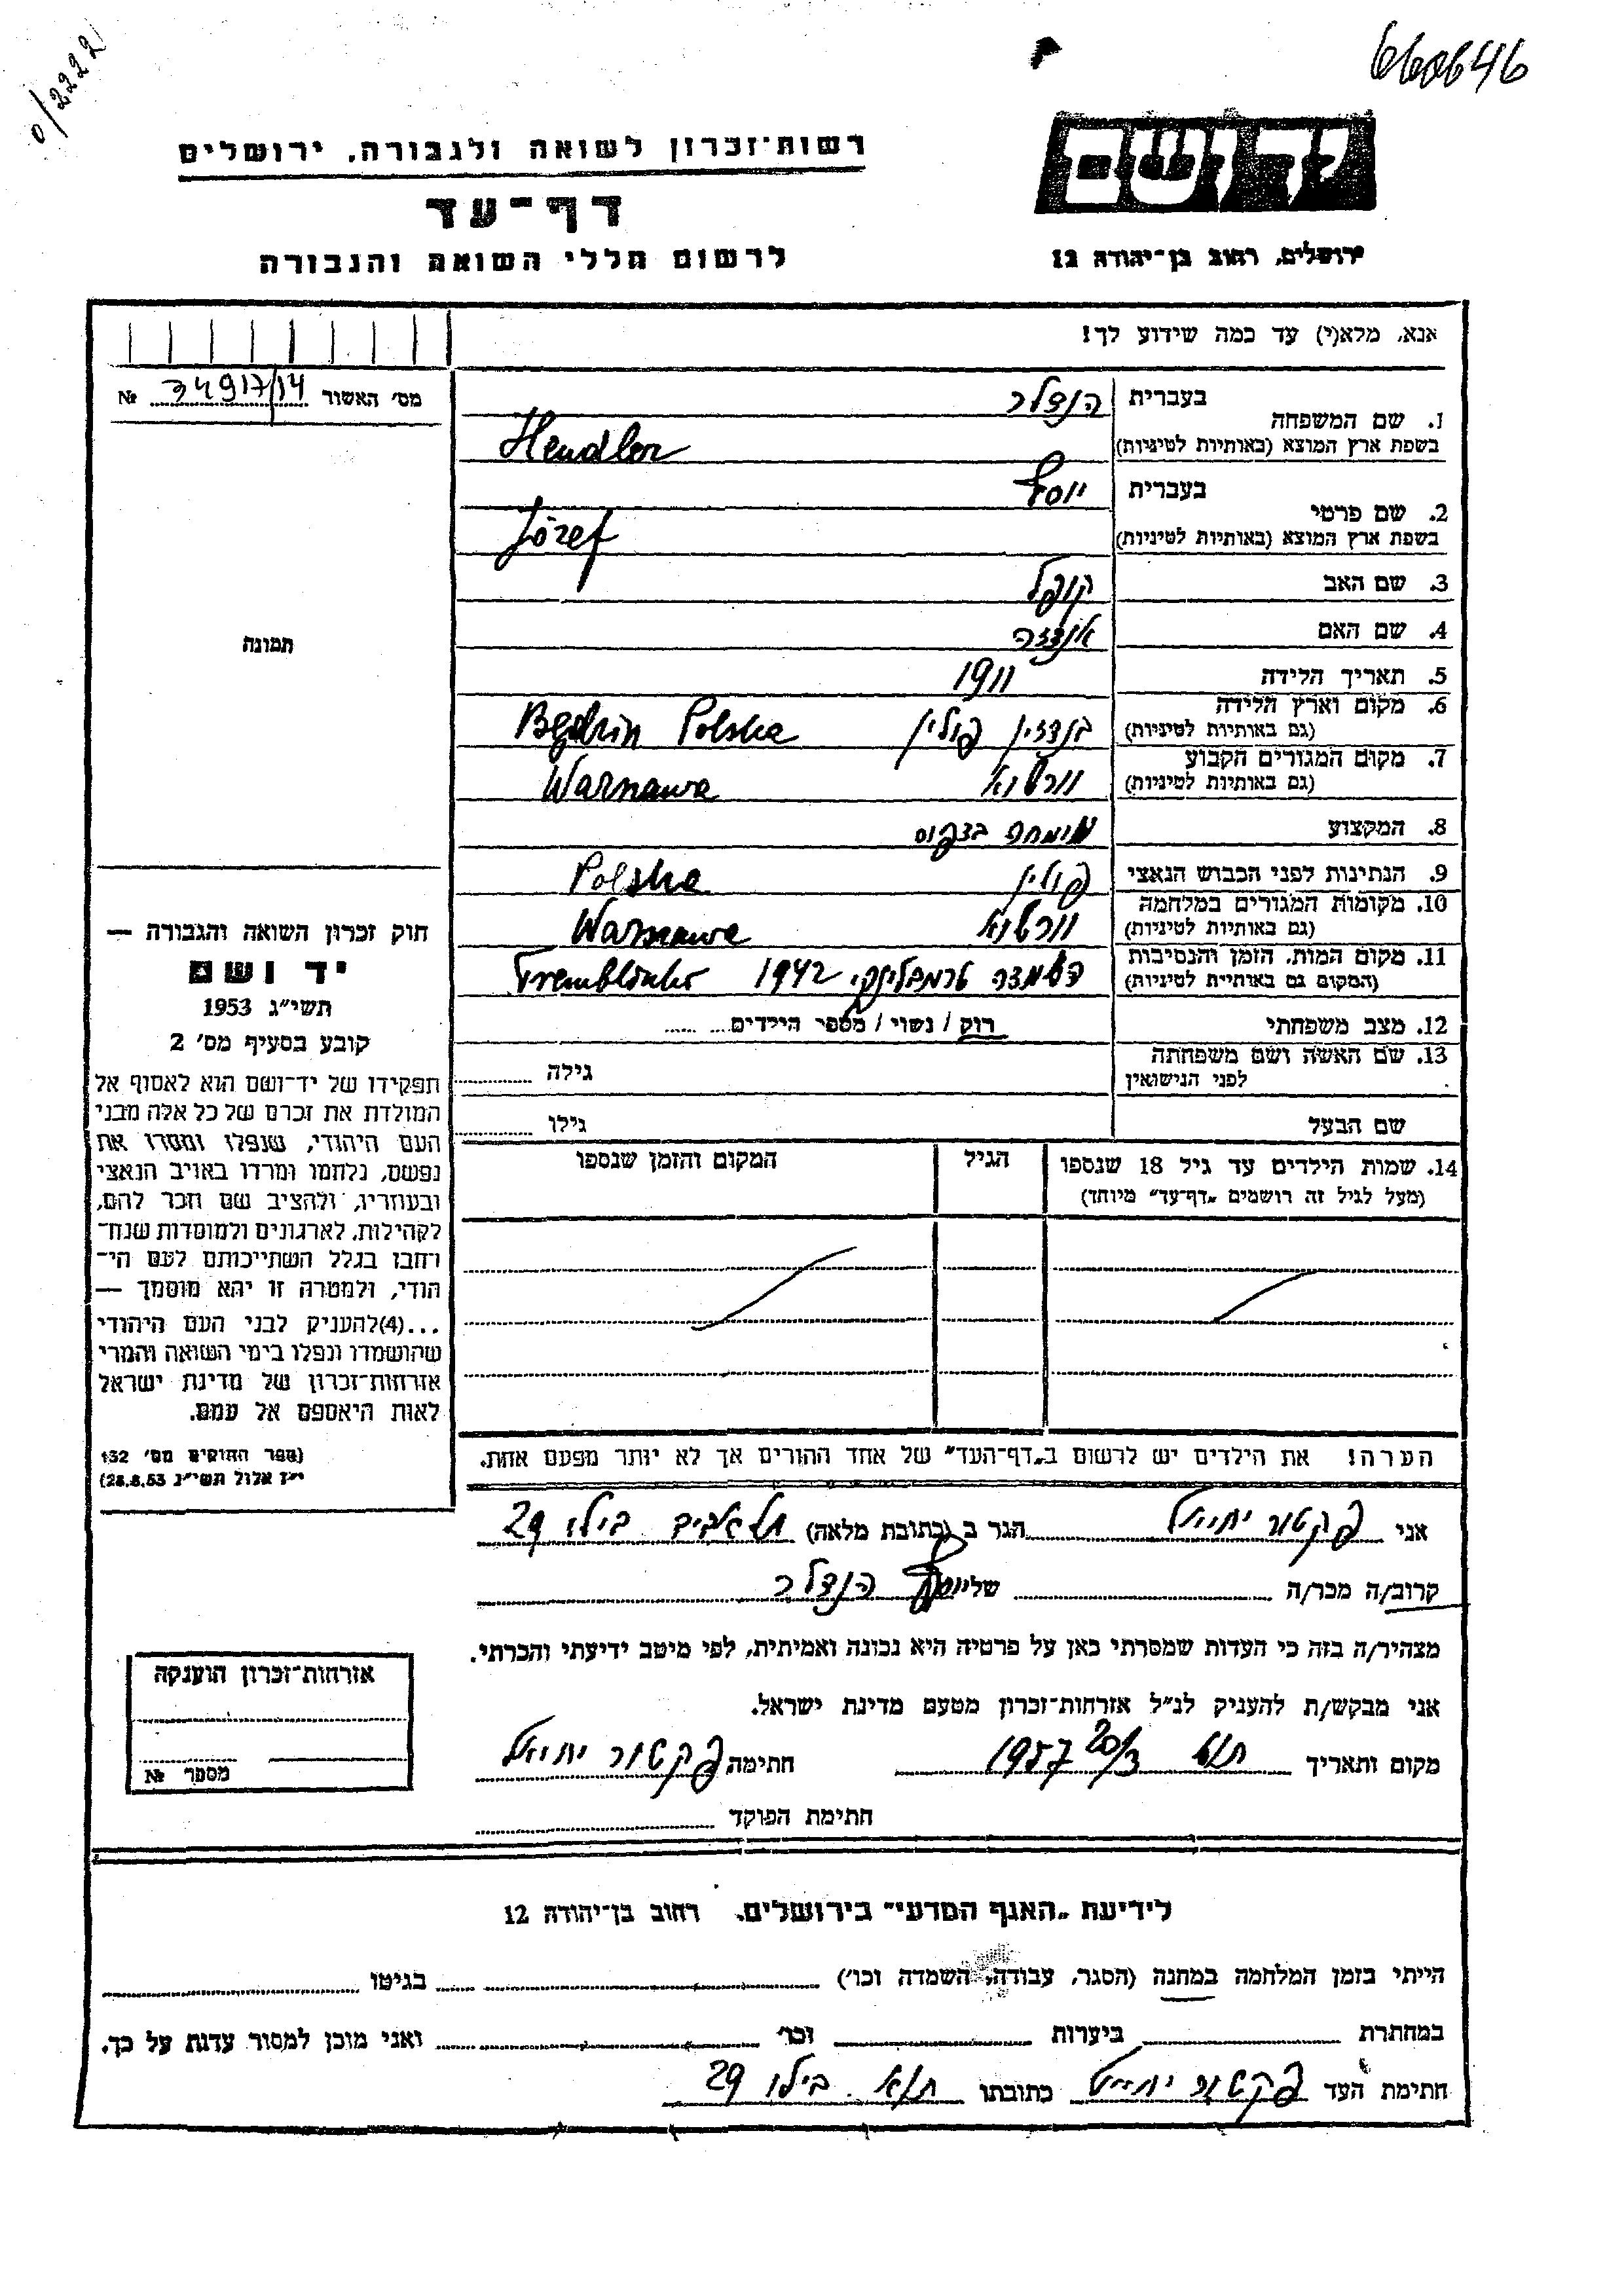 0/2222
660646
רשות־זכרון לשואה ולגבורה, ירושלים
דף־עד
לרשום חללי השואה והגבורה
יד ושם
ירושלים, רחוב בן־יהודה 12
אנא, מלא(י) עד כמה שידוע לך!
מס׳ האשור 34917/14 №
תמונה
1. שם המשפחה בעברית הנדלר
בשפת ארץ המוצא (באותיות לטיניות) Hendler
2. שם פרטי בעברית יוסף
בשפת ארץ המוצא (באותיות לטיניות) Józef
3. שם האב קופל
4. שם האם
5. תאריך הלידה 1911
6. מקום וארץ הלידה (גם באותיות לטיניות) בנדזין פולין Będzin Polska
7. מקום המגורים הקבוע (גם באותיות לטיניות) וורשא Warszawa
8. המקצוע מומחה בדפוס
9. הנתינות לפני הכבוש הנאצי פולין Polska
10. מקומות המגורים במלחמה (גם באותיות לטיניות) וורשא Warszawa
11. מקום המות, הזמן והנסיבות (המקום גם באותיות לטיניות) השמדה טרמבלינקי 1942
12. מצב משפחתי רוק / נשוי / מספר הילדים
13. שם האשה ושם משפחתה לפני הנישואין גילה
שם הבעל גילו
14. שמות הילדים עד גיל 18 שנספו הגיל המקום והזמן שנספו
(מעל לגיל זה רושמים „דף־עד״ מיוחד)
הערה! את הילדים יש לרשום ב„דף־העד״ של אחד ההורים אך לא יותר מפעם אחת.
חוק זכרון השואה והגבורה —
יד ושם
תשי״ג 1953
קובע בסעיף מס׳ 2
תפקידו של יד־ושם הוא לאסוף אל
המולדת את זכרם של כל אלה מבני
העם היהודי, שנפלו ומסרו את
נפשם, נלחמו ומרדו באויב הנאצי
ובעוזריו, ולהציב שם וזכר להם,
לקהילות, לארגונים ולמוסדות שנח־
רבו בגלל השתייכותם לעם הי־
הודי, ולמטרה זו יהא מוסמך —
...(4)להעניק לבני העם היהודי
שהושמדו ונפלו בימי השואה והמרי
אזרחות־זכרון של מדינת ישראל
לאות היאספם אל עמם.
(ספר החוקים מס׳ 132
י״ז אלול תשי״ג 28.8.53)
אני פקטור יחיאל הגר ב (כתובת מלאה) תל אביב בילו 29
קרוב/ה מכר/ה של יוסף הנדלר
מצהיר/ה בזה כי העדות שמסרתי כאן על פרטיה היא נכונה ואמיתית, לפי מיטב ידיעתי והכרתי.
אני מבקש/ת להעניק לנ״ל אזרחות־זכרון מטעם מדינת ישראל.
מקום ותאריך ת״א 20/3 1957 חתימה פקטור יחיאל
חתימת הפוקד
אזרחות־זכרון הוענקה
מספר №
לידיעת „האגף המדעי״ בירושלים, רחוב בן־יהודה 12
הייתי בזמן המלחמה במחנה (הסגר, עבודה, השמדה וכו׳) בגיטו
במחתרת ביערות וכו׳ ואני מוכן למסור עדות על כך.
חתימת העד פקטור יחיאל כתובתו ת״א. בילו 29